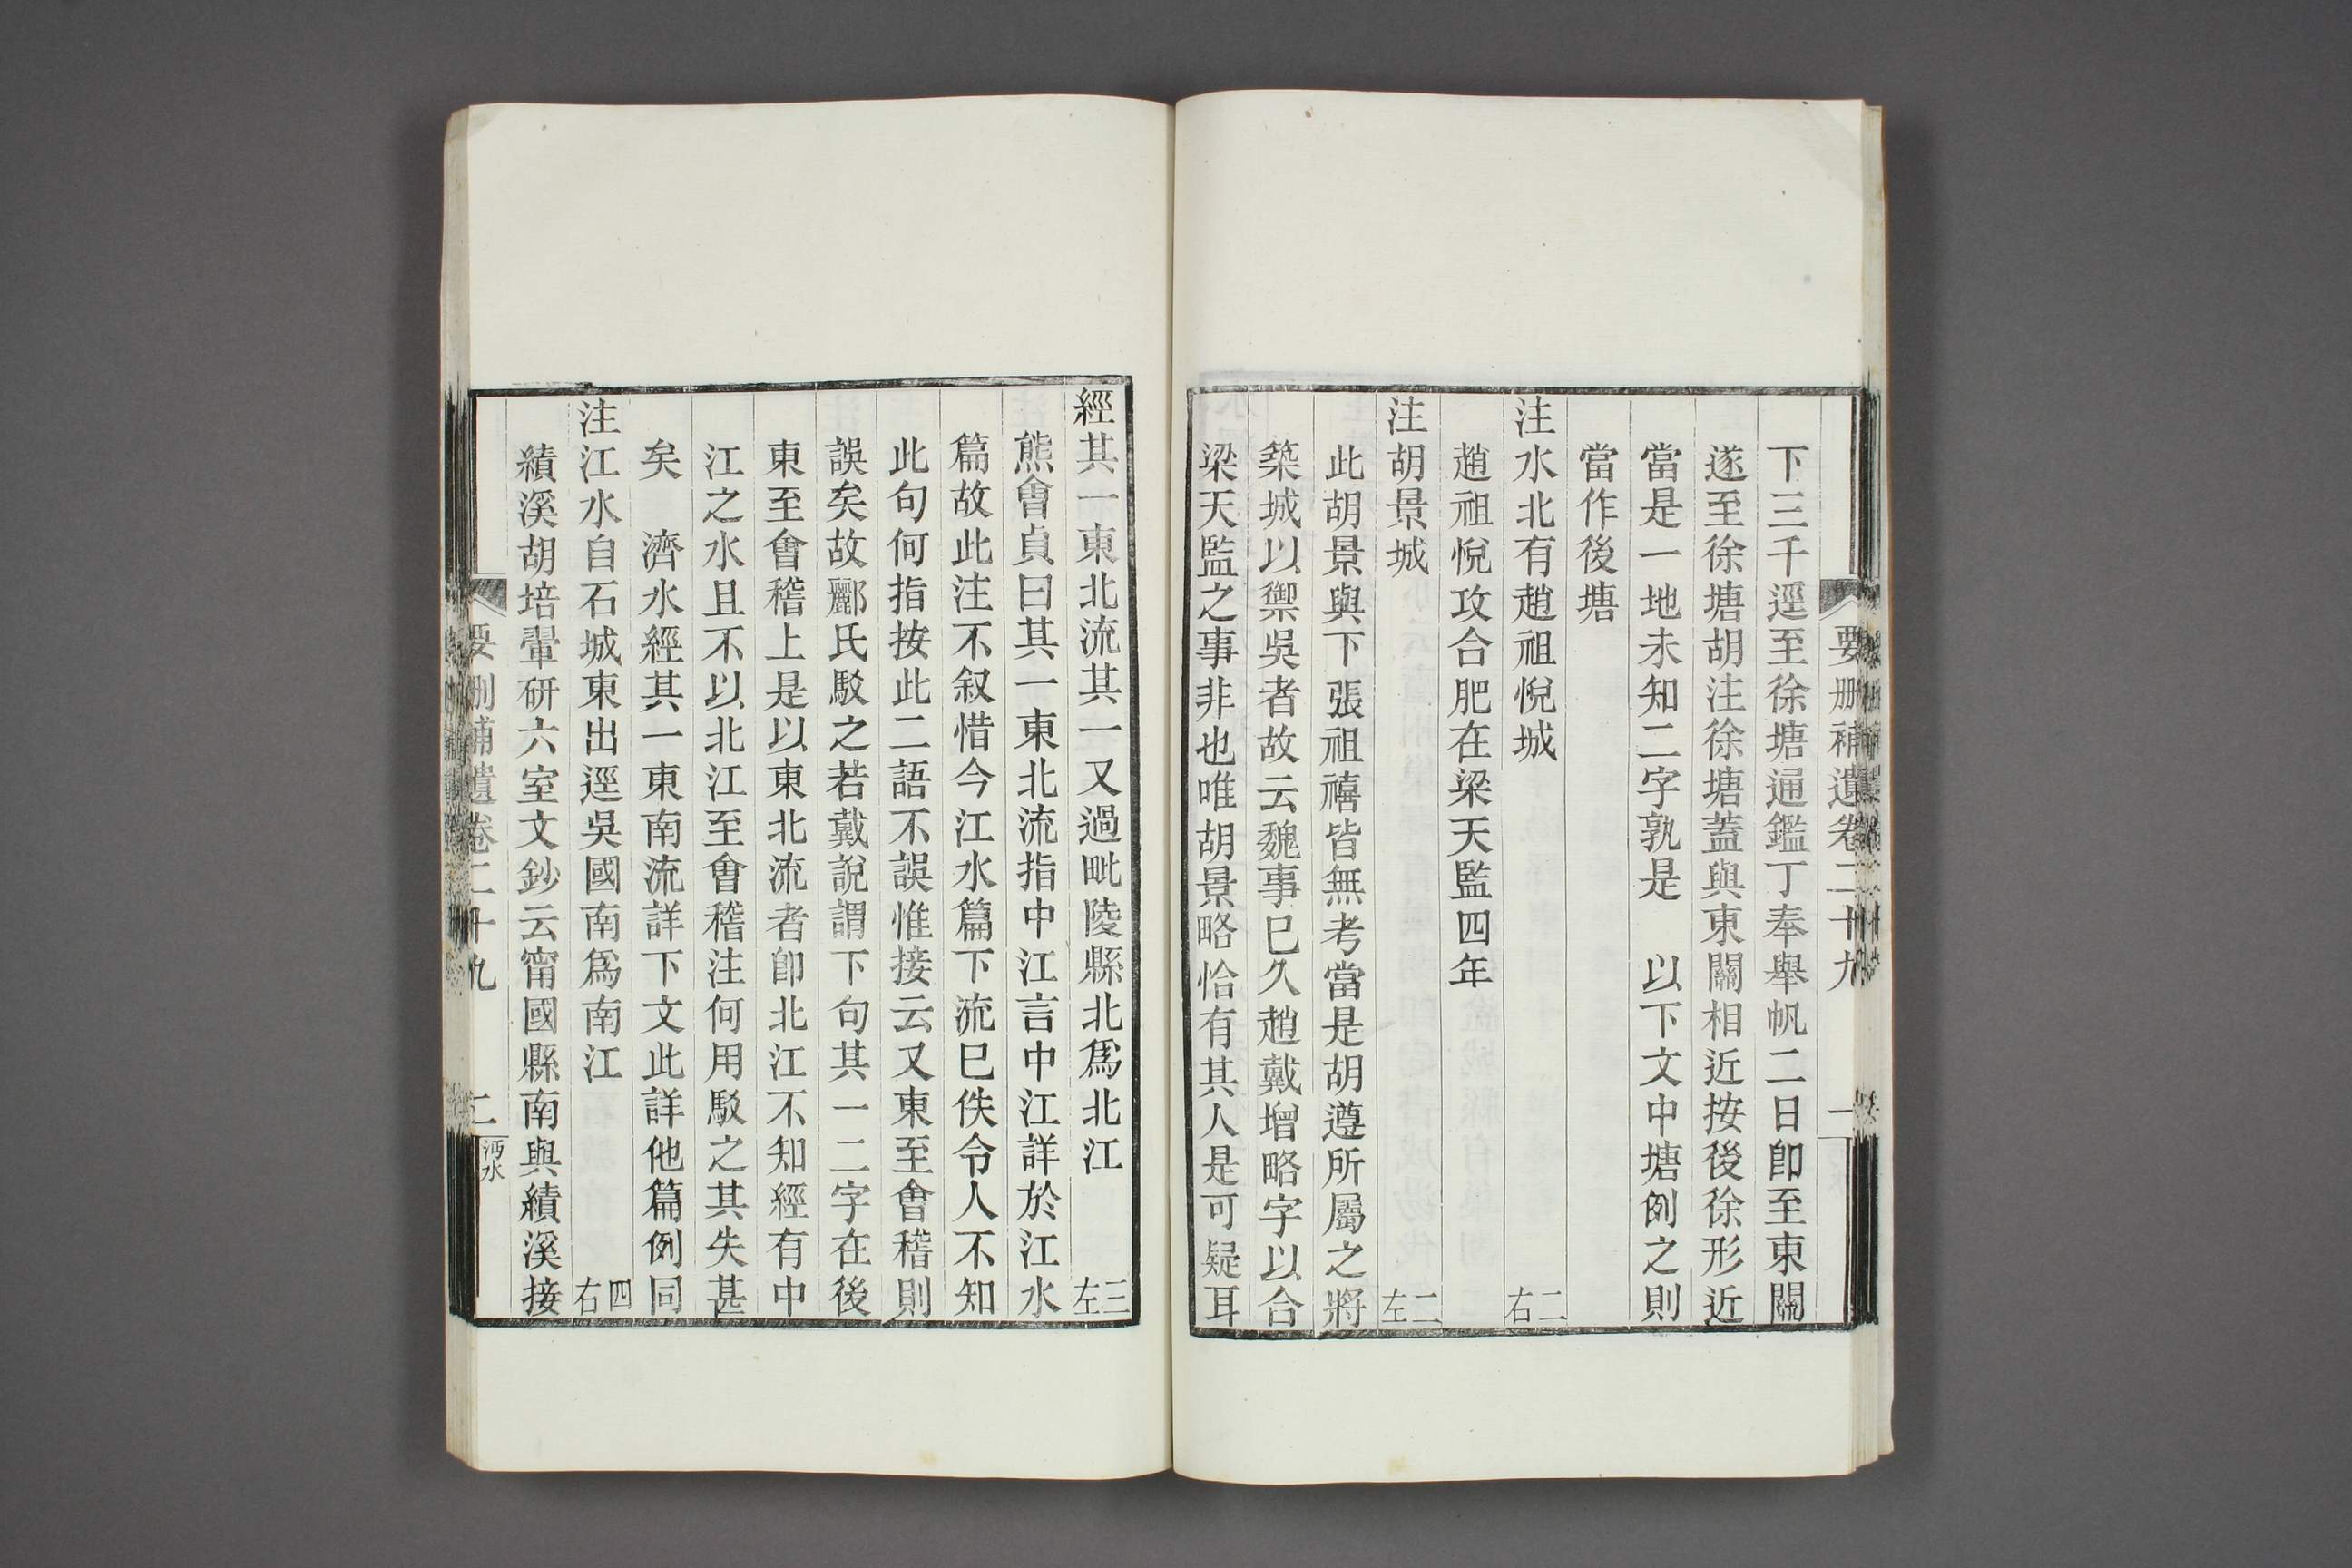 要刪補遺卷二十九
一
下三千逕至徐塘通鑑丁奉舉帆二日卽至東關
遂至徐塘胡注徐塘蓋與東關相近按後徐形近
當是一地未知二字孰是　以下文中塘例之則
當作後塘
注水北有趙祖悅城 二右
趙祖悅攻合肥在梁天監四年
注胡景城 二左
此胡景與下張祖禧皆無考當是胡遵所屬之將
築城以禦吳者故云魏事巳久趙戴增略字以合
梁天監之事非也唯胡景略恰有其人是可疑耳
經其一東北流其一又過毗陵縣北爲北江 三左
熊會貞曰其一東北流指中江言中江詳於江水
篇故此注不叙惜今江水篇下流巳佚令人不知
此句何指按此二語不誤惟接云又東至會稽則
誤矣故酈氏駁之若戴說謂下句其一二字在後
東至會稽上是以東北流者卽北江不知經有中
江之水且不以北江至會稽注何用駁之其失甚
矣　濟水經其一東南流詳下文此詳他篇例同
注江水自石城東出逕吳國南爲南江 四右
績溪胡培翬研六室文鈔云甯國縣南與績溪接
要刪補遺卷二十九
二
沔水